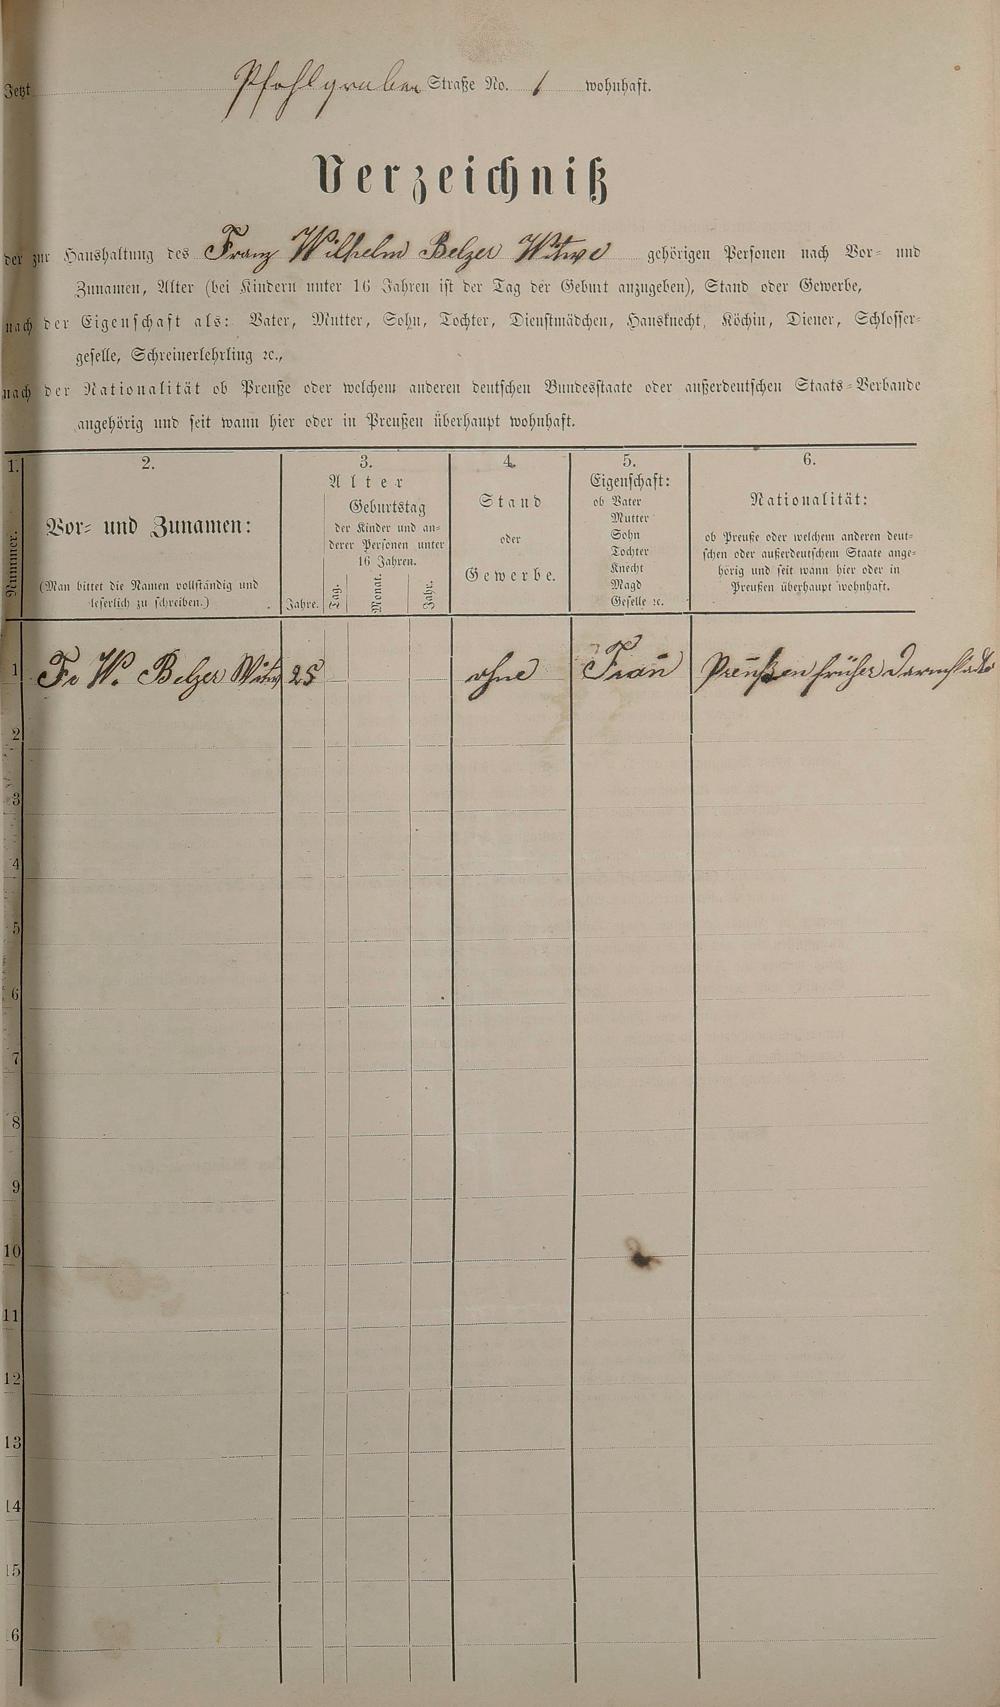 Jetzt Pfohlgraben Straße No. 1 wohnhaft.
Verzeichniß
der zur Haushaltung des Franz Wilhelm Belzer Witwe gehörigen Personen nach Vor- und
Zunamen, Alter (bei Kindern unter 16 Jahren ist der Tag der Geburt anzugeben), Stand oder Gewerbe,
nach der Eigenschaft als: Vater, Mutter, Sohn, Tochter, Dienstmädchen, Hausknecht, Köchin, Diener, Schlosser-
geselle, Schreinerlehrling ꝛc.,
nach der Nationalität ob Preuße oder welchem anderen deutschen Bundesstaate oder außerdeutschen Staats-Verbande
angehörig und seit wann hier oder in Preußen überhaupt wohnhaft.
1.
Nummer.
2.
Vor- und Zunamen:
(Man bittet die Namen vollständig und
leserlich zu schreiben.)
3.
Alter
Geburtstag
der Kinder und an-
derer Personen unter
16 Jahren.
Jahre. Tag. Monat. Jahr.
4.
Stand
oder
Gewerbe.
5.
Eigenschaft:
ob Vater
Mutter
Sohn
Tochter
Knecht
Magd
Geselle ꝛc.
6.
Nationalität:
ob Preuße oder welchem anderen deut-
schen oder außerdeutschem Staate ange-
hörig und seit wann hier oder in
Preußen überhaupt wohnhaft.
1 Fr W. Belzer Witw 25 ohne Frau Preußen früher Darmstadt
2
3
4
5
6
7
8
9
10
11
12
13
14
15
16